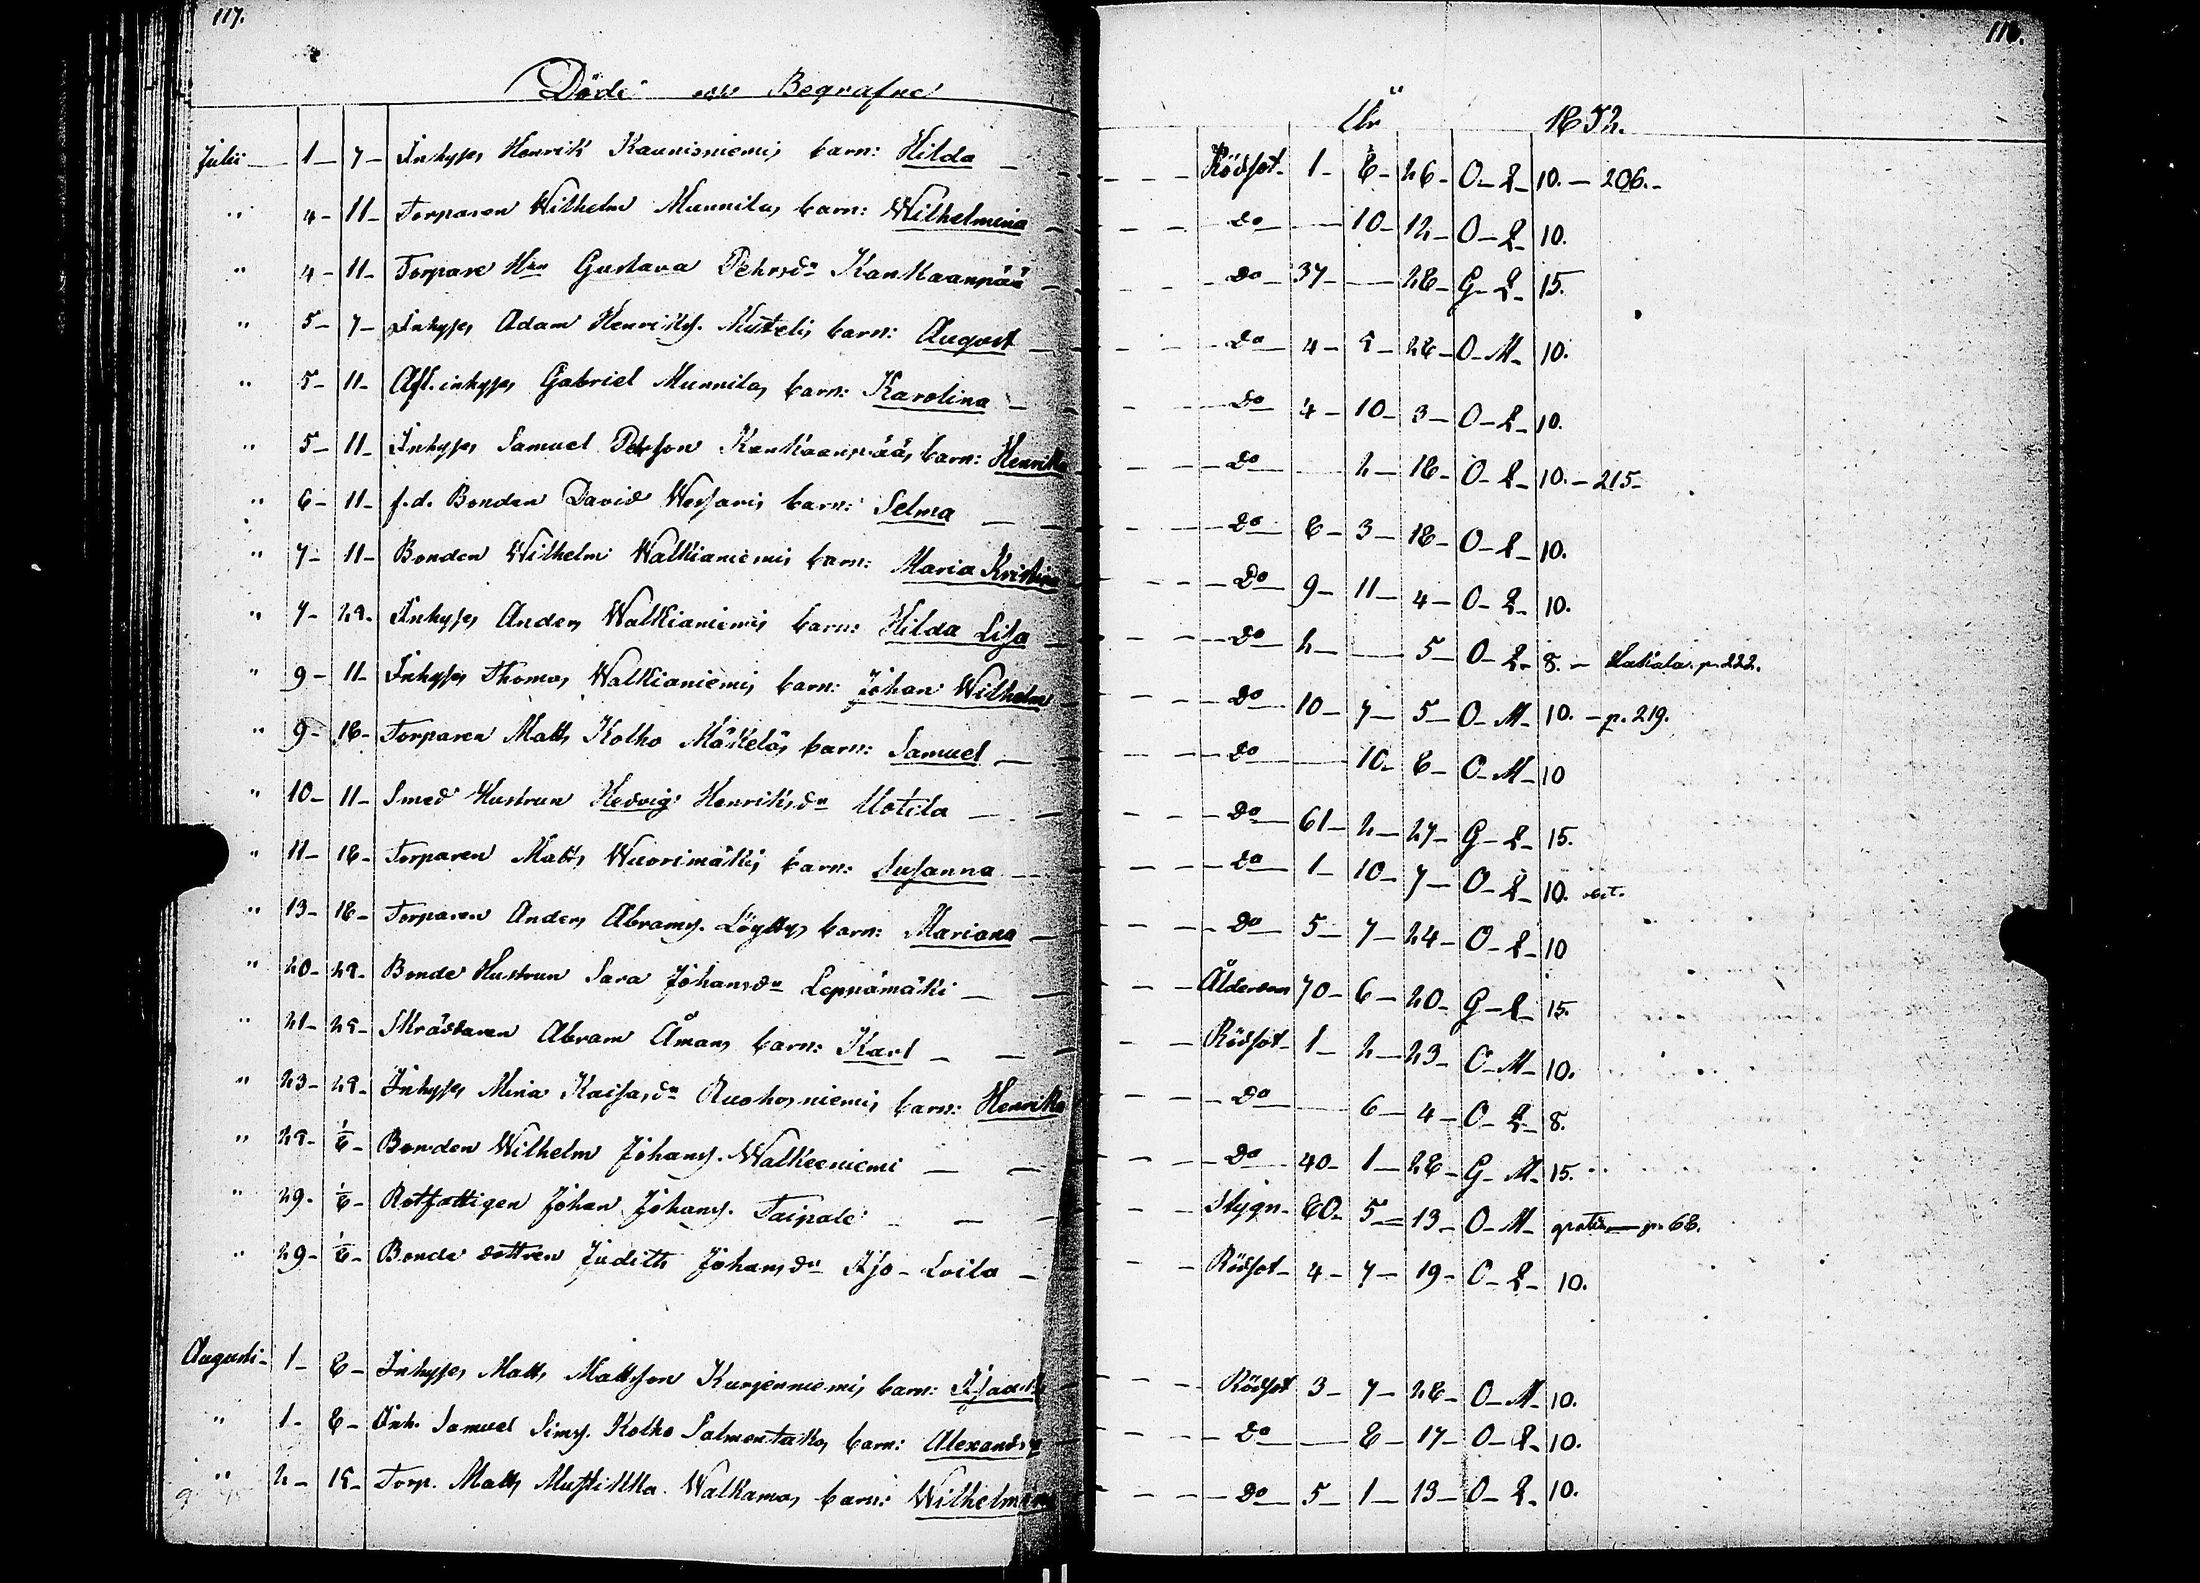 117.
118.
Döde och Begrafne
År 1852.
Julii — 1 — 7 — Inhyses Henrik Kaunisniemis barn: Hilda — Rödsot — 1 — 8 — 26 — O — Q — 10. — 206. —
" 4 — 11 — Torparen Wilhelm Munnilas barn: Wilhelmina — do — 10 — 12 — O — Q — 10.
" 4 — 11 — Torpare Hun Gustava Pehrsdr Kankaanpää — do — 37 — 28 — G — Q — 15.
" 5 — 7 — Inhyses Adam Henriks. barn: August — do — 4 — 5 — 28 — O — M — 10.
" 5 — 11 — Afl. inhyses Gabriel Munnilas barn: Karolina — do — 4 — 10 — 3 — O — Q — 10.
" 5 — 11 — Inhyses Samuel Pehrson Kankaanpääs barn: Henrika — do — 2 — 18 — O — Q — 10. — 215 —
" 6 — 11 — f.d. Bonden David Wessaris barn: Selma — do — 8 — 3 — 18 — O — Q — 10.
" 7 — 11 — Bonden Wilhelm Walkianiemis barn: Maria Kristina — do — 9 — 11 — 4 — O — Q — 10.
" 7 — 25 — Inhyses Anders Walkianiemis barn: Hilda Lisa — do — 2 — 5 — O — Q — 8. — p. 222.
" 9 — 11 — Inhyses Thomas Walkianiemis barn: Johan Wilhelm — do — 10 — 7 — 5 — O — M — 10. — p. 219.
" 9 — 18 — Torparen Matts Kolho Mäkeläs barn: Samuel — do — 10 — 8 — O — M — 10
" 10 — 11 — Smed Hustrun Hedvig Henriksdr Uotila — do — 61 — 2 — 27 — G — Q — 15.
" 11 — 18 — Torparen Matts Wuorimäkis barn: Susanna — do — 1 — 10 — 7 — O — Q — 10.
" 13 — 18 — Torparen Anders Abrams. Löyttys barn: Mariana — do — 5 — 7 — 24 — O — Q — 10
" 20 — 25 — Bonde Hustrun Sara Johansdr Leppämäki — Ålderdom 70 — 6 — 20 — G — Q — 15.
" 21 — 25 — Skräddaren Abram Åmans barn: Karl — Rödsot — 1 — 2 — 23 — O — M — 10.
" 23 — 25 — Inhyses Mina Kaisasdr Ruohosniemis barn: Henrika — do — 6 — 4 — O — Q — 8.
" 25 — 1/8 — Bonden Wilhelm Johans. Walkeeniemi — do — 40 — 1 — 28 — G — M — 15.
" 29 — 1/8 — Rotfattigen Johan Johans. Taipale — Stygn — 80 — 5 — 13 — O — M — gratis — p. 68.
" 29 — 1/8 — Bonde dottren Judith Johansdr Iso-Loila — Rödsot — 4 — 7 — 19 — O — Q — 10.
Augusti — 1 — 8 — Inhyses Matts Mattsson Kurjenniemis barn: Isaak — Rödsot 3 — 7 — 28 — O — M — 10.
" 1 — 8 — Inh. Samuel Sims. Kolho barn: Alexandra — do — 8 — 17 — O — Q — 10.
" 2 — 15 — Torp. Matts Mustikka Walkamas barn: Wilhelmina — do — 5 — 1 — 13 — O — Q — 10.